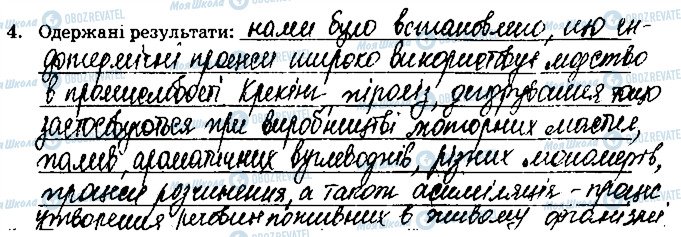 4. Одержані результати: нами було встановлено, що ен-
дотермічні процеси широко використовує людство
в промисловості Крекінг, піроліз, дегідрування тощо
застосовуються при виробництві моторних мастил,
палив, ароматичних вуглеводнів, різних мономерів,
процеси розчинення, а також асиміляція - процес
утворення речовин поживних в живому організмі